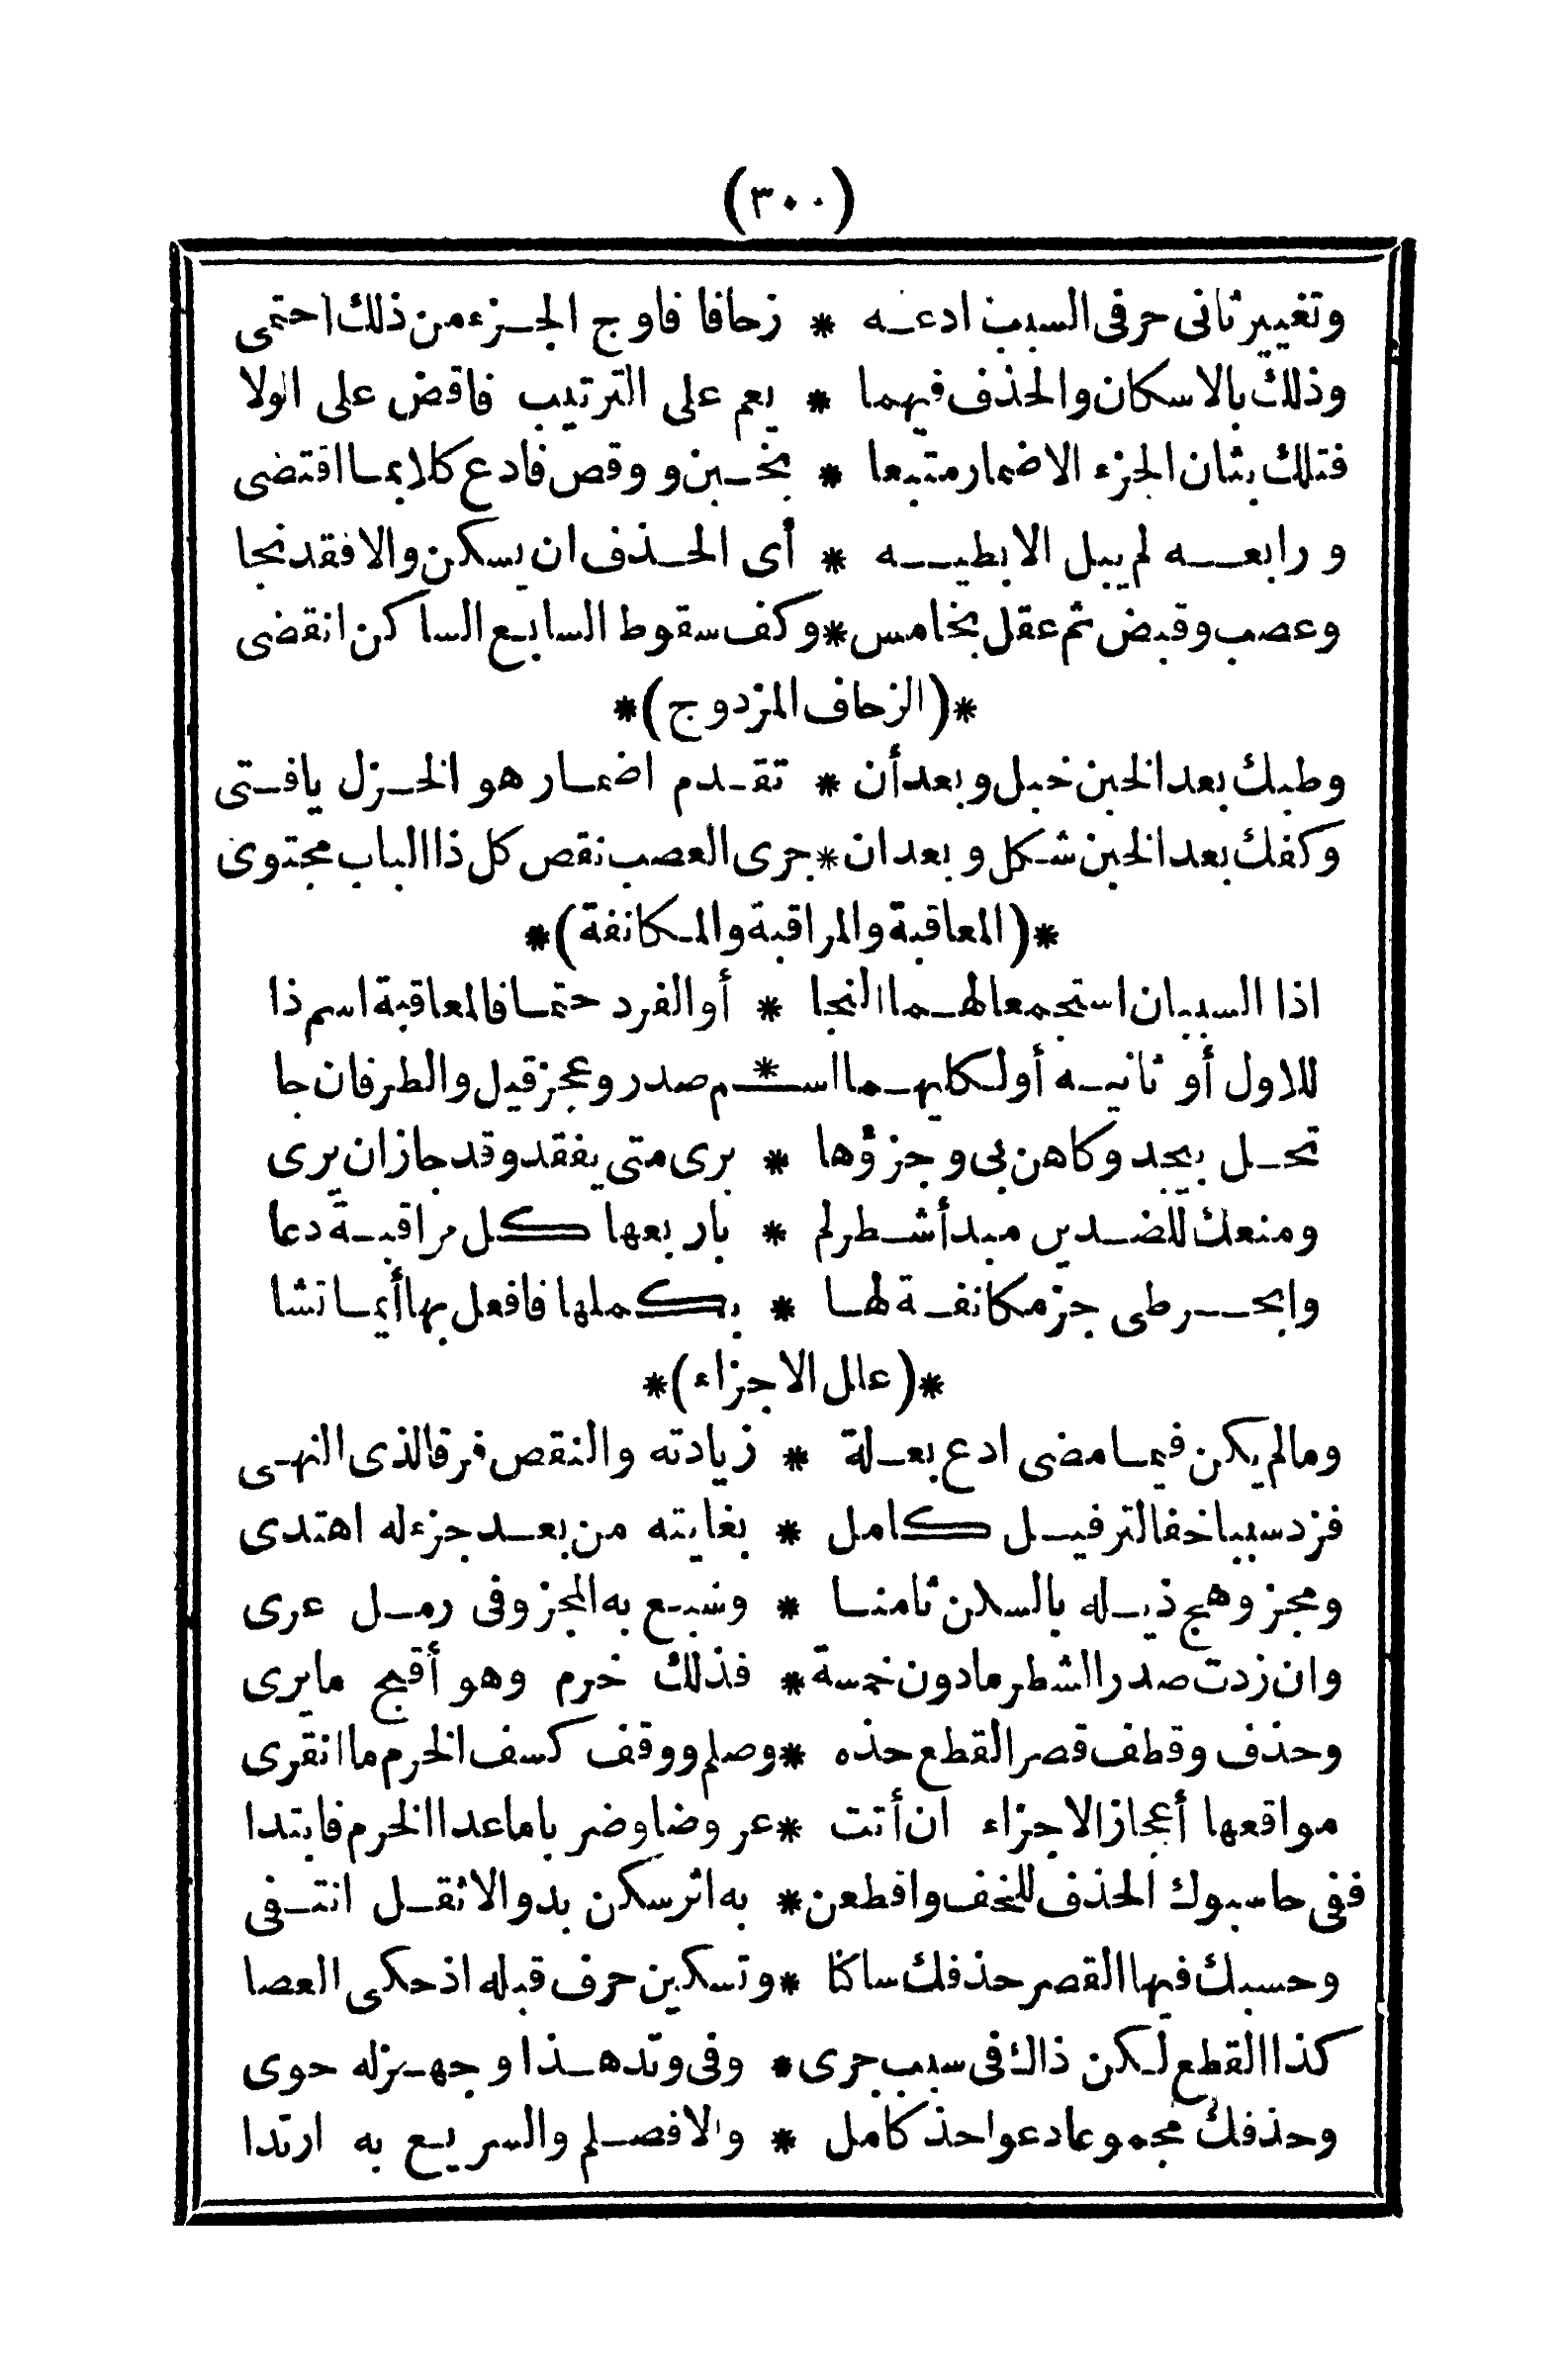 (٣٠٠)
وتغيير ثانى حرفى السبب ادعه * زحافا فاوج الجزء من ذلك احتمى
وذلك بالاسكان والحذف فيهما * يعم على الترتيب فاقض على الولا
فتلك بثان الجزء الاضمار متبعا * بخبن ووقص فادع كلا بما اقتضى
ورابعه لم يبل الا بطيه * أى الحذف ان يسكن والا فقد نجا
وعصب وقبض ثم عقل بخامس * وكف سقوط السابع الساكن انقضى
*(الزحاف المزدوج)*
وطيك بعد الخبن خبل وبعد أن * تقدم اضمار هو الخزل يافتى
وكفك بعد الخبن شكل وبعد ان * جرى العصب نقص كل ذا الباب مجتوى
*(المعاقبة والمراقبة والمكانفة)*
اذا السببان استجمعا لهما النجا * أو الفرد حتما فالمعاقبة اسم ذا
للاول أو ثانيه أو لكليهما اسـ * ـم صدر وعجز قيل والطرفان جا
تحل بيجد وكاهن بى وجزؤها * برى متى يفقد وقد جاز ان يرى
ومنعك للضدين مبدأ شطر لم * بار بعها كل مراقبة دعا
وابحر طى جز مكانفة لها * بكملها فافعل بها أيما تشا
*(علل الاجزاء)*
ومالم يكن فيما مضى ادع بعلة * زيادته والنقص فرقا لذى النهى
فزد سببا خفا لترفيل كامل * بغايته من بعد جزء له اهتدى
ومجز وهج ذيله بالسكن ثامنا * وسبع به المجزو فى رمل عرى
وان زدت صدر الشطر مادون خمسة * فذلك خرم وهو أقبح مايرى
وحذف وقطف قصر القطع حذه * وصلم ووقف كسف الخرم ما انقرى
مواقعها أعجاز الاجزاء ان أتت * عروضا وضربا ماعدا الخرم فابتدا
ففى حاسبوك الحذف للخف واقطعن * به اثر سكن بدو الاثقل انتفى
وحسبك فيها القصر حذفك ساكنا * وتسكين حرف قبله اذ حكى العصا
كذا القطع لكن ذاك فى سبب جرى * وفى وتد هذا وجهزله حوى
وحذفك مجموعا دعوا حذ كامل * والا فصلم والسريع به ارتدا